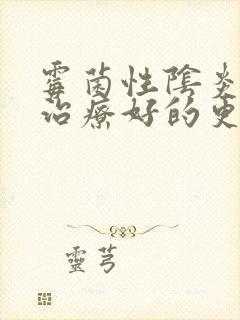 霉菌性陰炎
治療好的更
靈芎